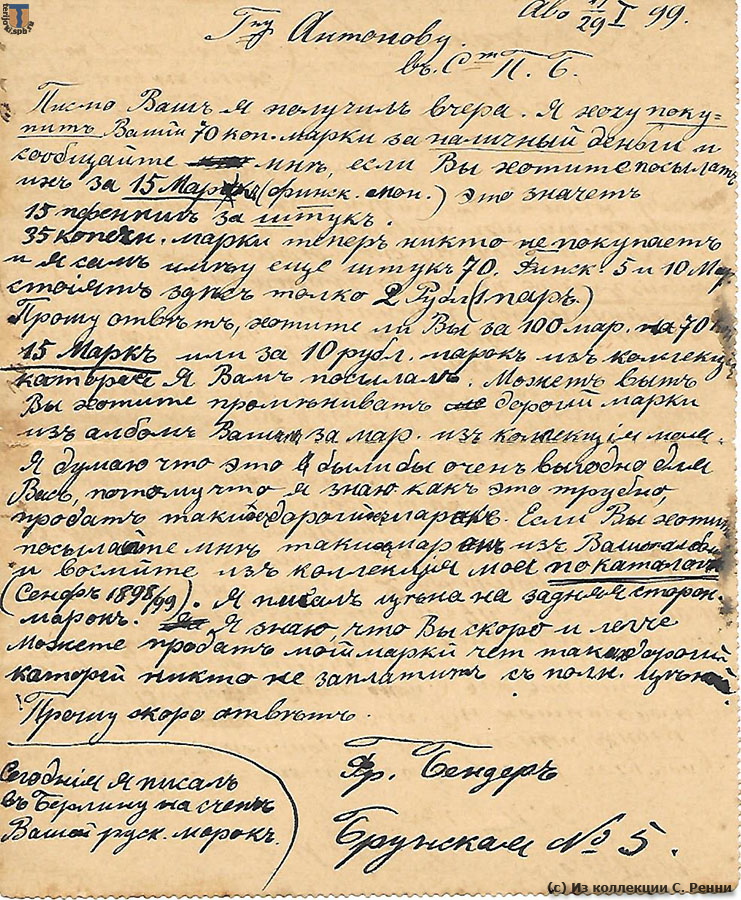 terijoki.spb.ru
Або 17/29 I 99.
Гну Антонову.
въ Ст П. Б.
Писмо Вашъ я получилъ вчера. Я хочу поку=
питъ Вашiи 70 коп. марки за наличный деньги и
сообщайте мнѣ, если Вы хотите посылатъ
ихъ за 15 Марк (финск. мон.) это значетъ
15 пфеннигъ за штукъ.
35 копечн. марки теперъ никто не покупаетъ
и я самъ имѣу еще штукъ 70. Финск. 5 и 10 Мар
стоіятъ здѣсъ толко 2 Рубл (1. паръ.)
Прошу отвѣтъ, хотите ли Вы за 100 мар. на 70
15 Маркъ или за 10 рубл. марокъ изъ коллекцi
каторая я Вамъ посылалъ. Можетъ бытъ
Вы хотите промѣниватъ дорогiй марки
изъ альбомъ Вашъ за мар. изъ колекцiя моя.
Я думаю что это былибы оченъ выгодно для
Васъ, потому что я знаю какъ это трубно,
продатъ такiй дорогiй марокъ. Если Вы хотит
посылайте мнѣ такiя марокъ изъ
и восмйте изъ коллекция моя по каталогъ
(Сенфъ 1898/99). Я писалъ цѣна на задняя сторон.
марокъ. Я знаю, что Вы скоро и легче
можете продатъ мой марки чет такая дорогiй
каторiй никто не заплатитъ съ полн. цѣной
Прошу скоро отвѣтъ.
Сегоднiя я писалъ
въ Берлину на счетъ
Вашей руск. марокъ.
Фр. Бендеръ
Брунская № 5.
(c) Из коллекции С. Ренни